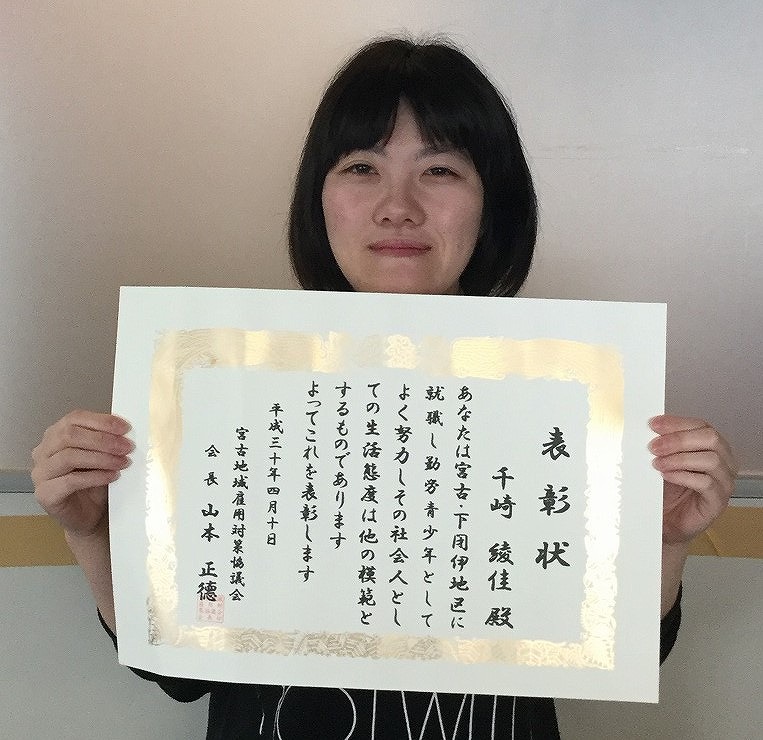 表彰状
千崎 綾佳 殿
あなたは宮古・下閉伊地区に
就職し勤労青少年として
よく努力しその社会人とし
ての生活態度は他の模範と
するものであります
よってこれを表彰します
平成三十年四月十日
宮古地域雇用対策協議会
会長 山本 正德